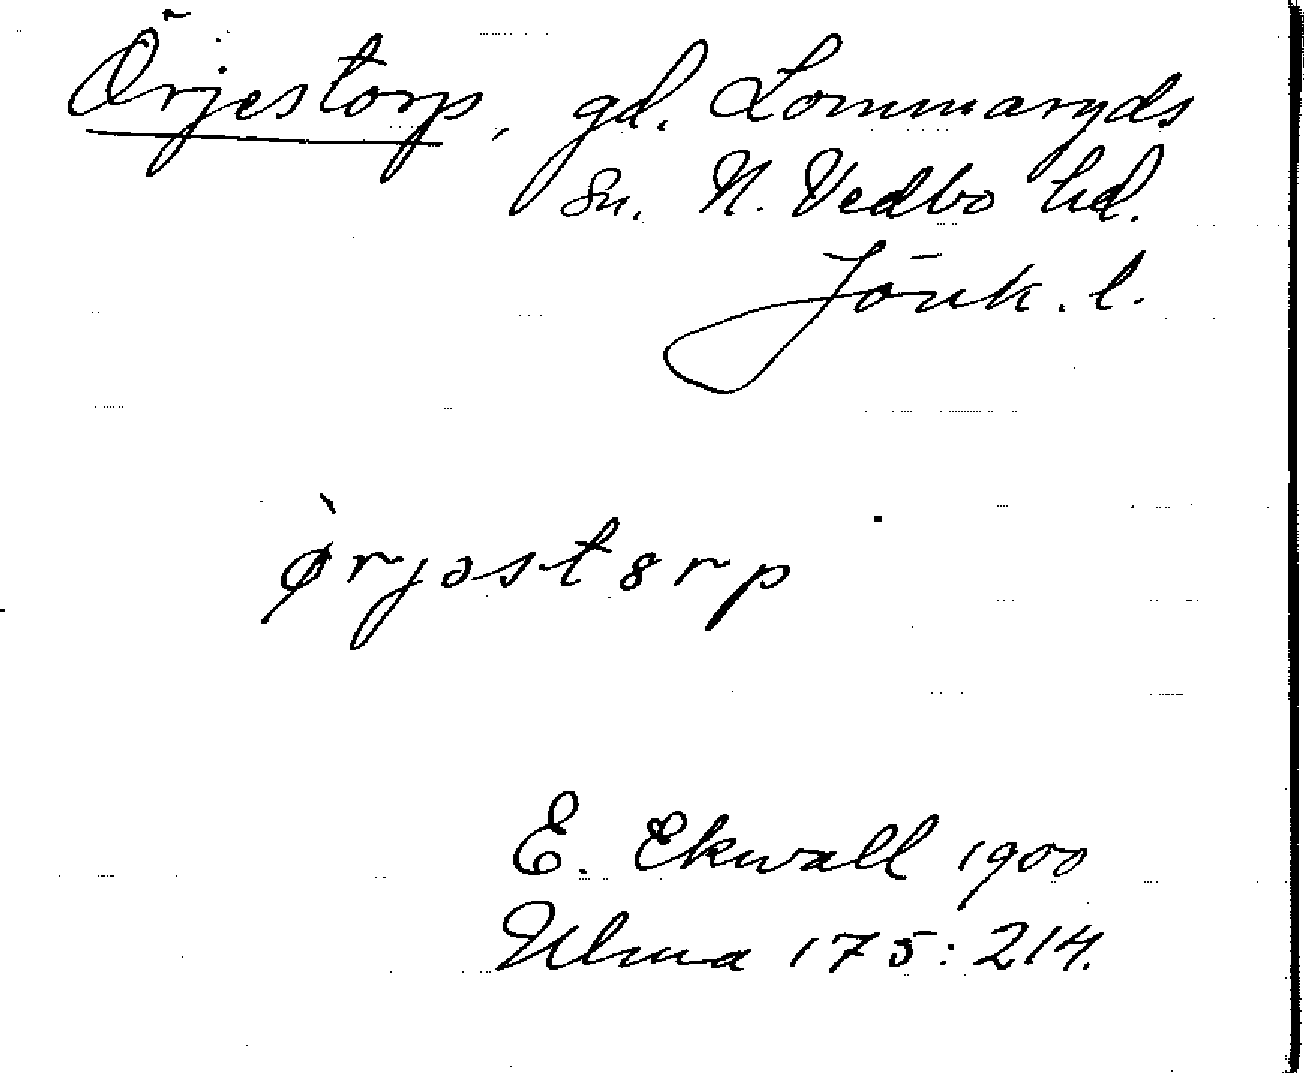 Örjestorp, gd. Lommaryds
sn. N. Vedbo hd.
Jönk. l.
ø̀rjəstȣrp
E. Ekwall 1900
Ulma 175:214.